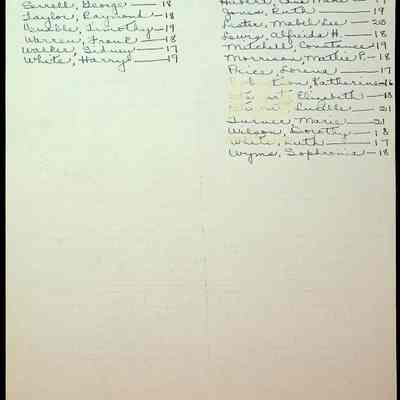 Serrell, George — 18
Taylor, Raymond — 18
Venable, Timothy — 19
Warren, Frank — 18
Walker, Sidney — 17
White, Harry — 19
Jones, Ruth — 19
Lester, Mabel Lee — 20
Lewis, Alfreda H. — 18
Mitchell, Constance 19
Morrison, Mattie P. — 18
Price, Lorena — 17
Katherine 16
Elizabeth — 18
Lucille — 21
Turner, Marie — 21
Wilson, Dorothy — 18
White, Ruth — 17
Wyms, Sophronia — 18